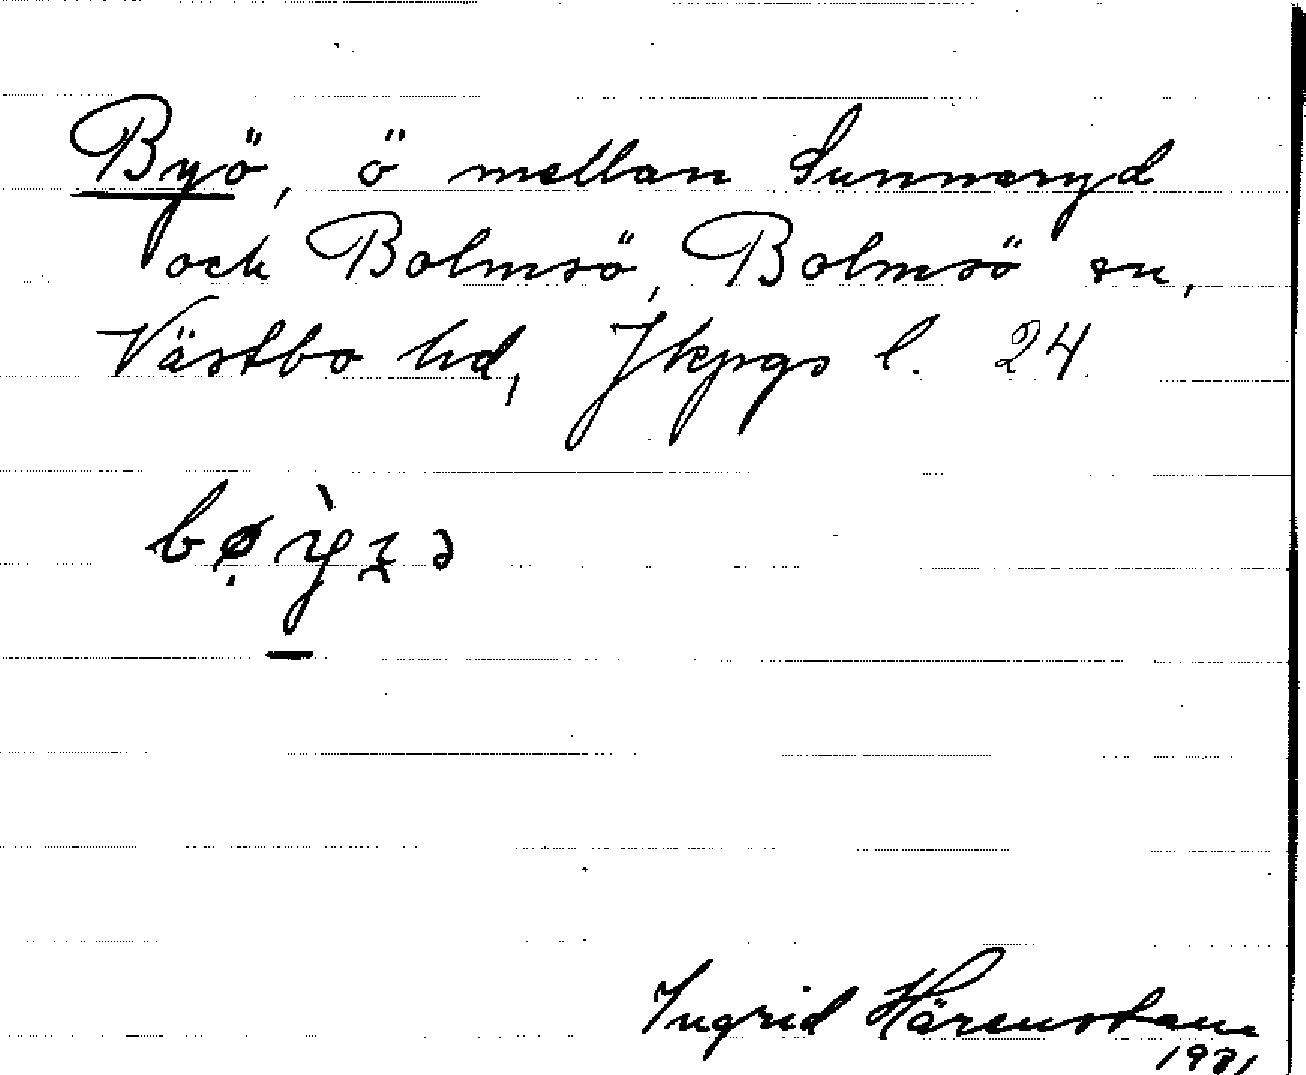 Byö, ö mellan Sunnaryd
och Bolmsö, Bolmsö sn,
Västbo hd, Jkpgs l. 24
Ingrid Härenstam